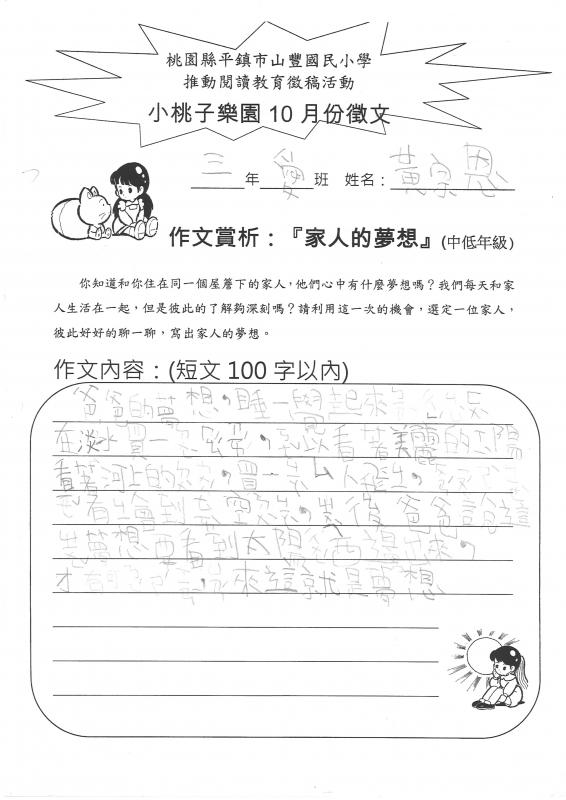 桃園縣平鎮市山豐國民小學
推動閱讀教育徵稿活動
小桃子樂園 10 月份徵文
三年愛班 姓名：黃宗恩
作文賞析：『家人的夢想』(中低年級)
你知道和你住在同一個屋簷下的家人，他們心中有什麼夢想嗎？我們每天和家
人生活在一起，但是彼此的了解夠深刻嗎？請利用這一次的機會，選定一位家人，
彼此好好的聊一聊，寫出家人的夢想。
作文內容：(短文 100 字以內)
爸爸的夢想，睡一覺起來
在淡水買一，可以看著美麗的太陽
看著河上的，買一
看到，爸爸說這
夢想要看到太陽西邊
才來這就是夢想